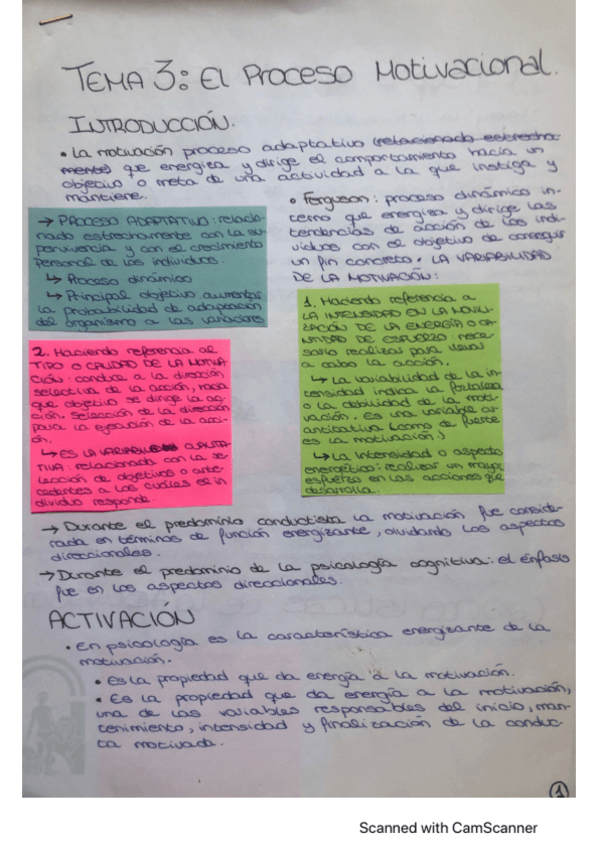 TEMA 3: El Proceso Motivacional.
INTRODUCCIÓN.
• La motivación proceso adaptativo (relacionado estrecha-
mente) que energiza y dirige el comportamiento hacia un
objetivo o meta de una actividad a la que instiga y
mantiene.
→ PROCESO ADAPTATIVO: relacio-
nado estrechamente con la su-
pervivencia y con el crecimiento
personal de los individuos.
↳ Proceso dinámico
↳ Principal objetivo: aumentar
la probabilidad de adaptación
del organismo a las variaciones
• Ferguson: proceso dinámico in-
terno que energiza y dirige las
tendencias de acción de los indi-
viduos con el objetivo de conseguir
un fin concreto. LA VARIABILIDAD
DE LA MOTIVACIÓN:
1. Haciendo referencia a
LA INTENSIDAD EN LA MOVILI-
ZACIÓN DE LA ENERGÍA O CAN-
TIDAD DE ESFUERZO nece-
sario realizar para llevar
a cabo la acción.
↳ La variabilidad de la in-
tensidad indica la fortaleza
o la debilidad de la moti-
vación. Es una variable cu-
antitativa (como de fuerte
es la motivación)
↳ La intensidad o aspecto
energético: realizar un mayor
esfuerzo en las acciones que
desarrolla.
2. Haciendo referencia al
TIPO O CALIDAD DE LA MOTIVA-
CIÓN: conduce a la dirección
selectiva de la acción, hacia
que objetivo se dirige la ac-
ción. Selección de la dirección
para la ejecución de la acci-
ón.
↳ ES LA VARIABLE CUALITA-
TIVA: relacionada con la se-
lección de objetivos o ante-
cedentes a los cuáles el in-
dividuo responde.
→ Durante el predominio conductista la motivación fue conside-
rada en términos de función energizante, olvidando los aspectos
direccionales.
→ Durante el predominio de la psicología cognitiva: el énfasis
fue en los aspectos direccionales.
ACTIVACIÓN
• En psicología es la característica energizante de la
motivación.
• Es la propiedad que da energía a la motivación.
• Es la propiedad que da energía a la motivación,
una de las variables responsables del inicio, man-
tenimiento, intensidad y finalización de la conduc-
ta motivada.
1
Scanned with CamScanner